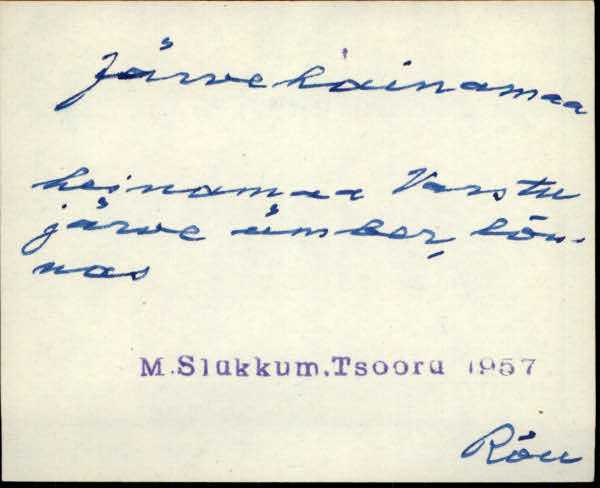 Järvehainamaa
heinamaa Varstu
järve ümber, lõu-
nas
M.Slukkum.Tsooru 1957
Rõu